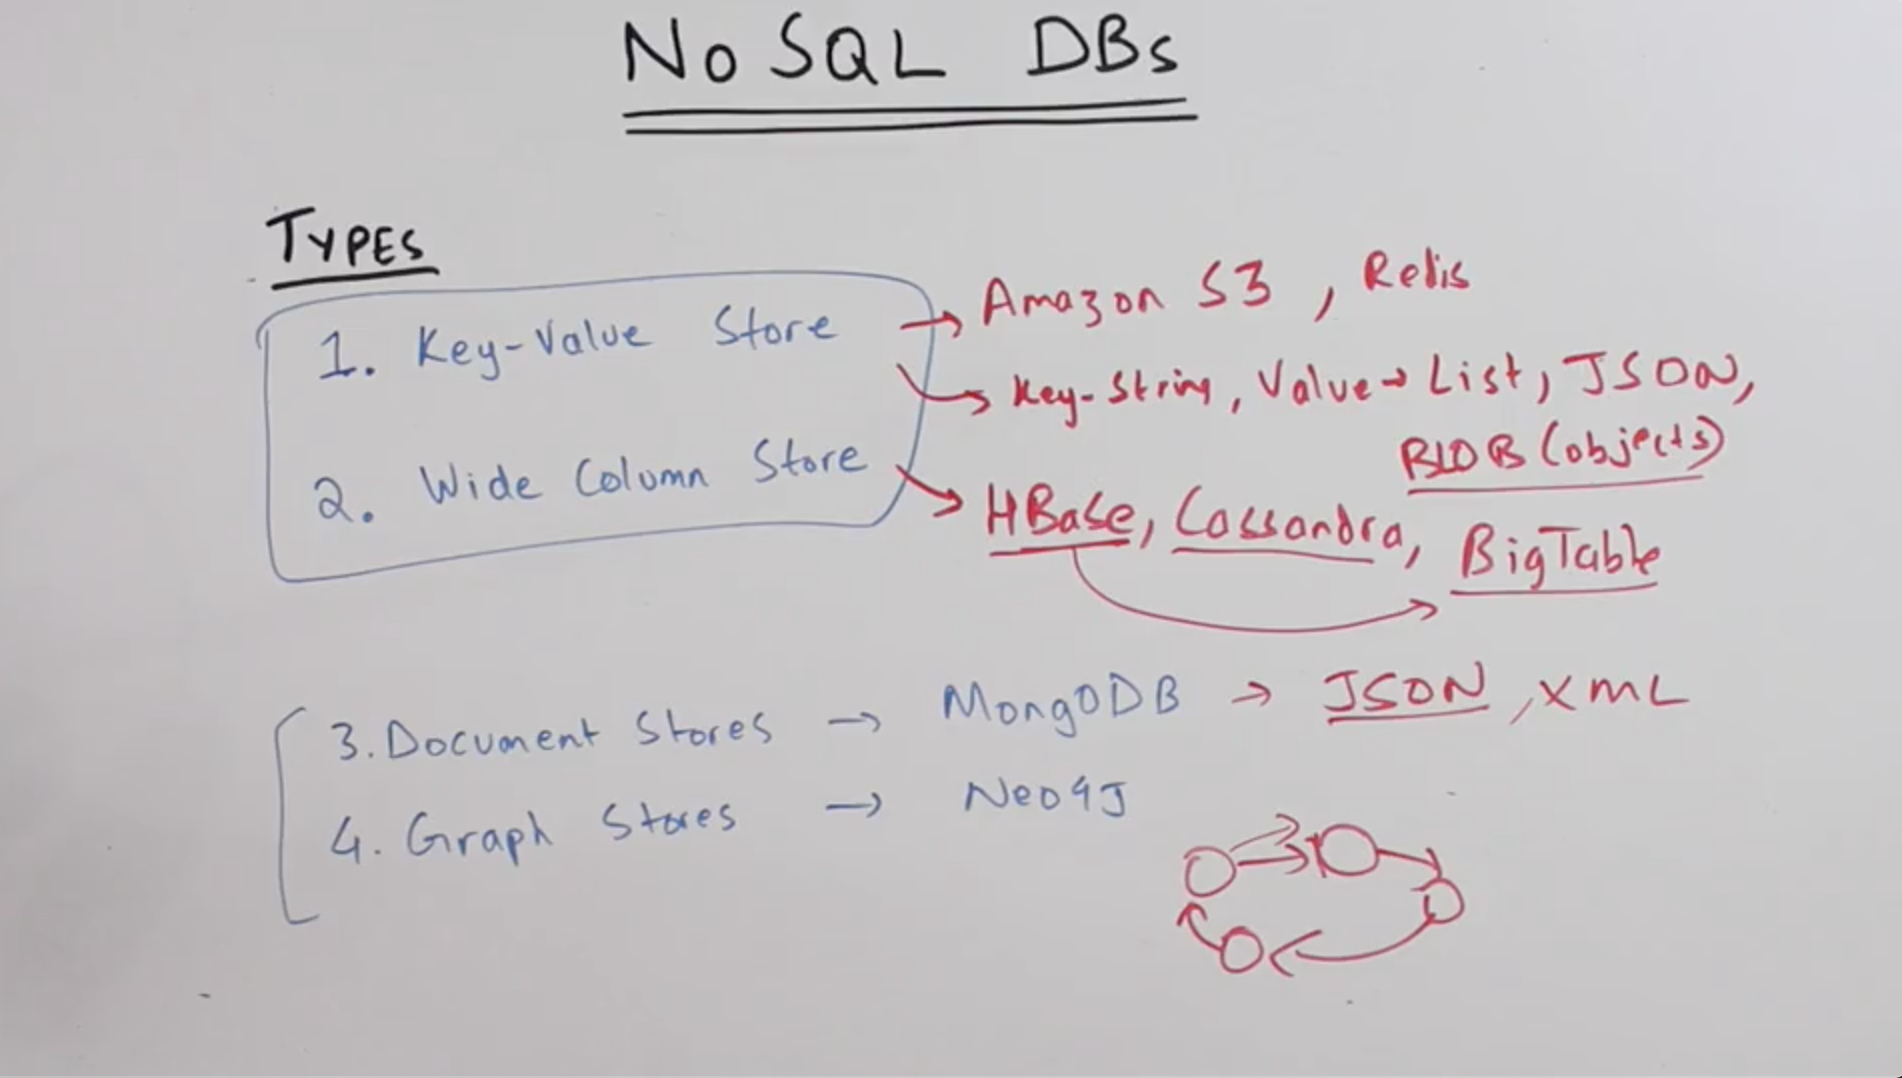 NoSQL DBs
TYPES
1. Key-Value Store → Amazon S3, Redis
Key-String, Value → List, JSON,
BLOB (objects)
2. Wide Column Store → HBase, Cassandra, BigTable
3. Document Stores → MongoDB → JSON, XML
4. Graph Stores → Neo4J